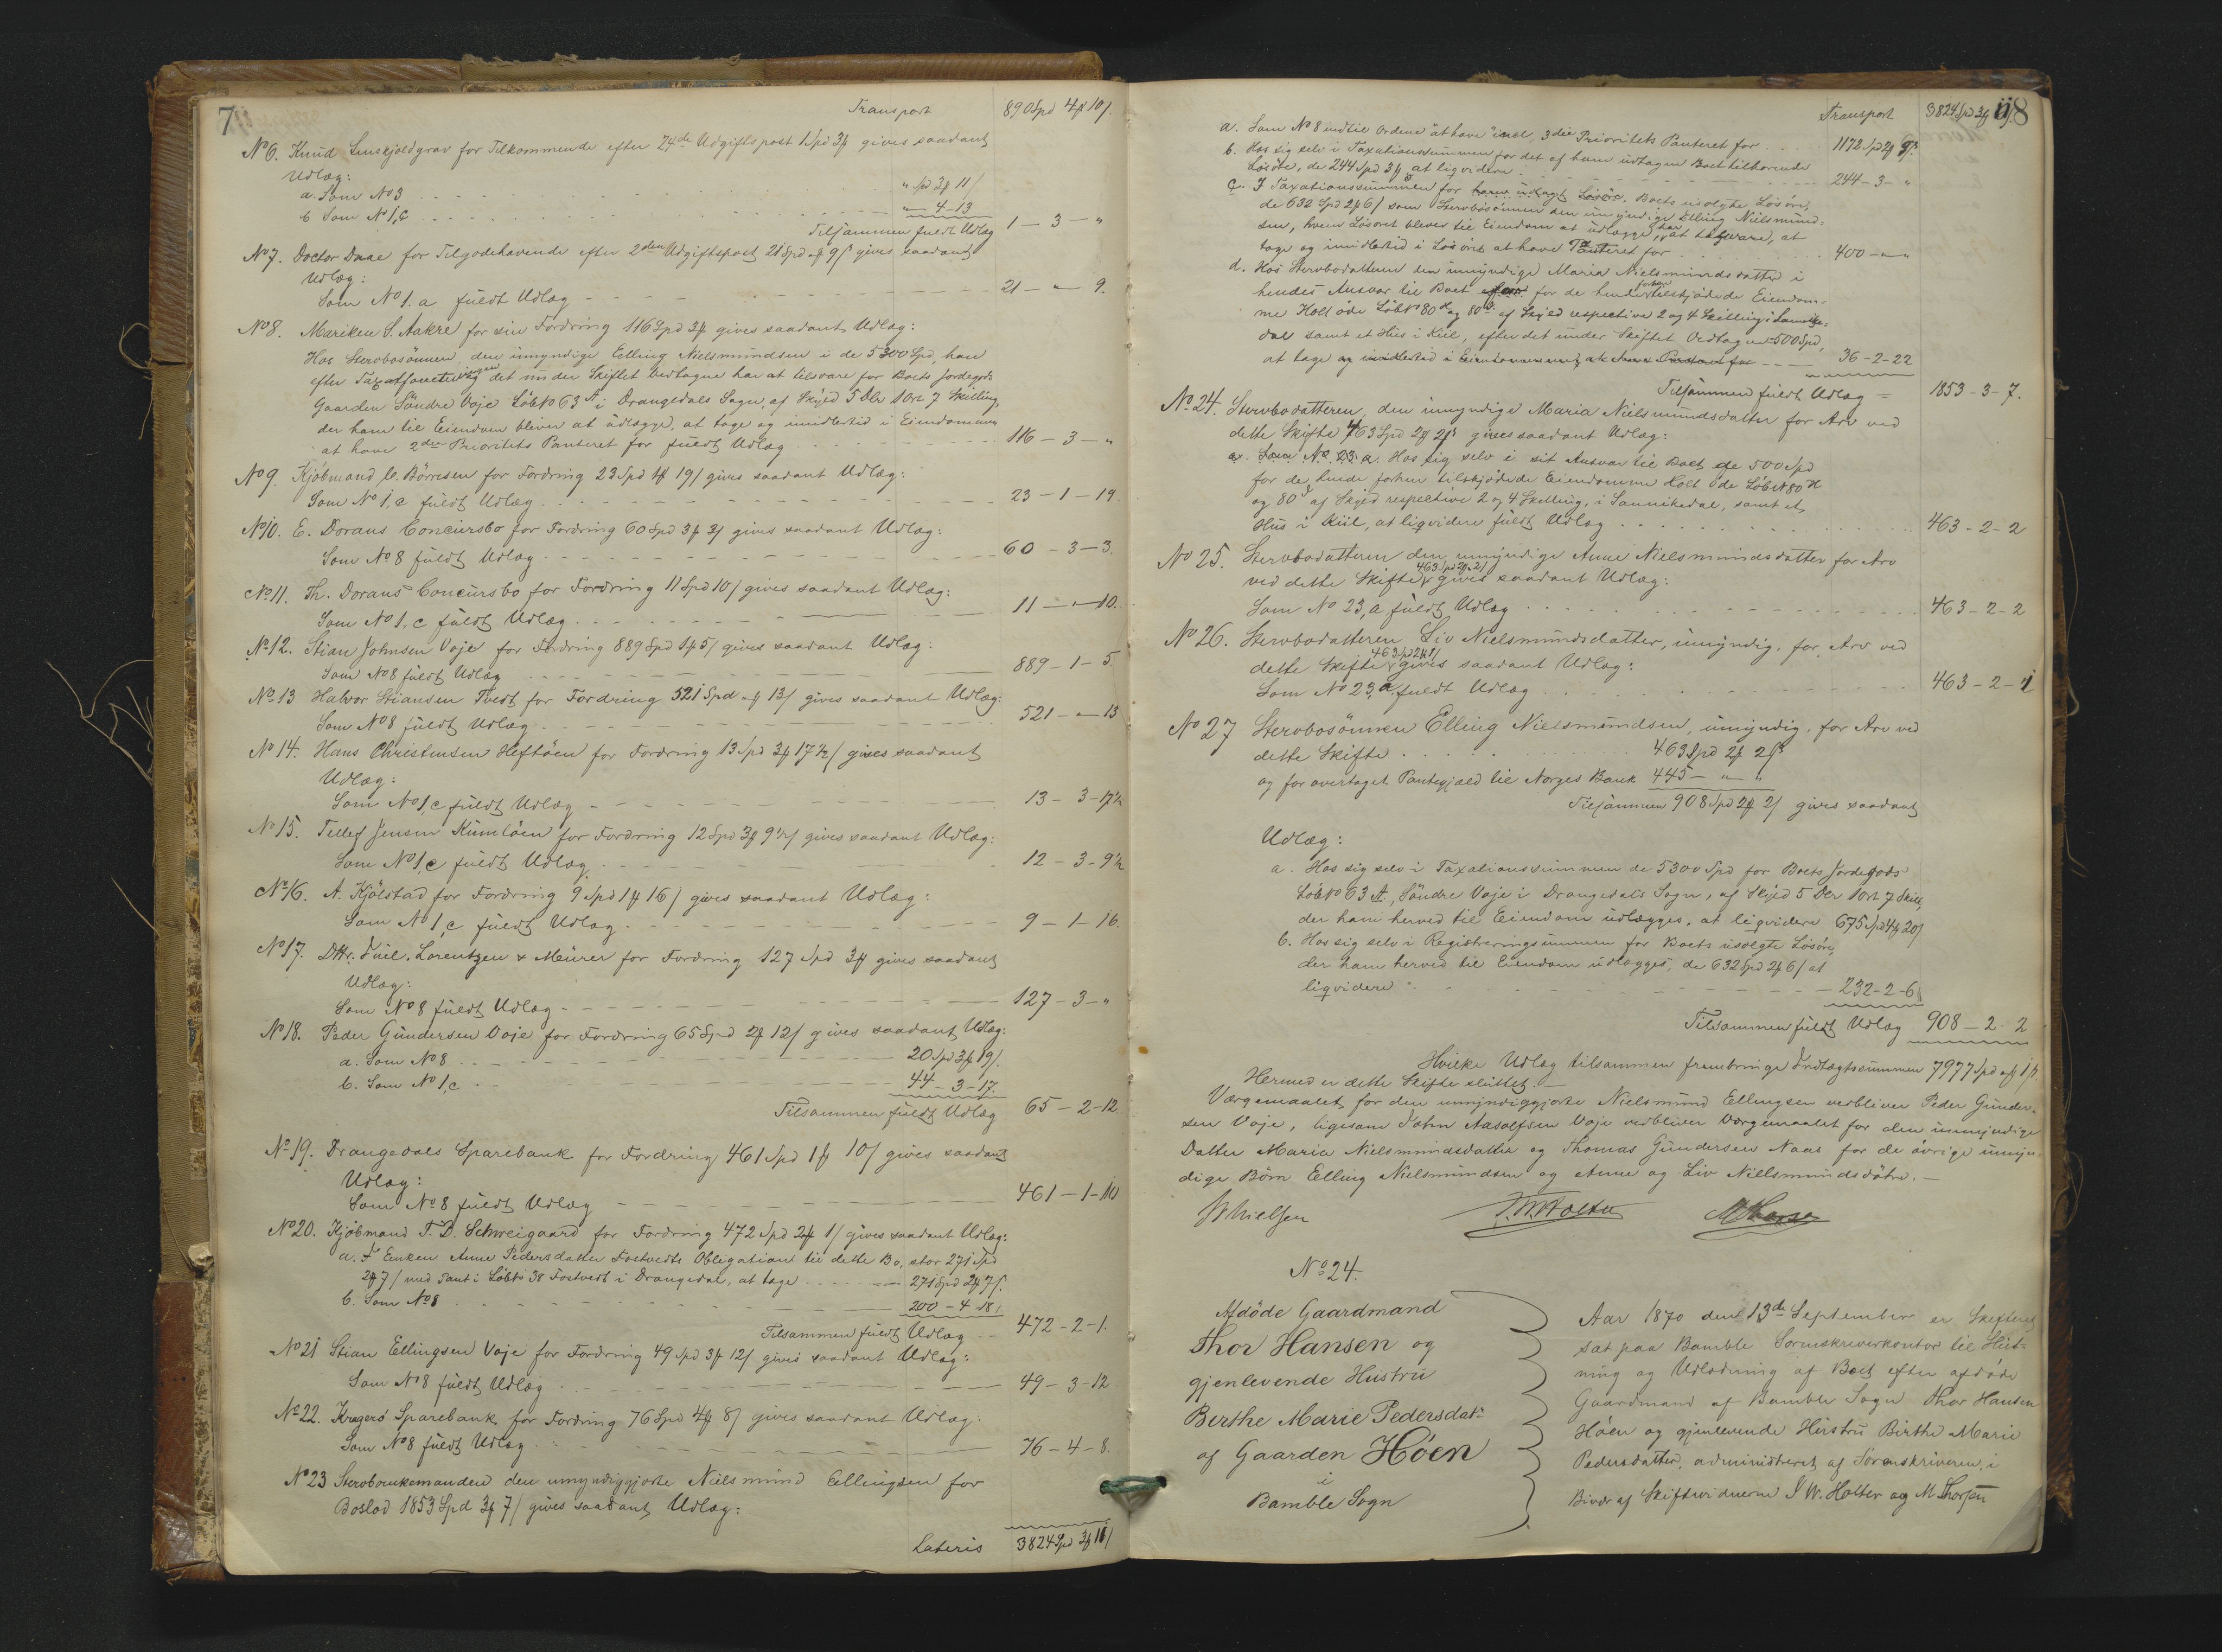 7
Transport 890 Spd 4 ff 10/.
No 6. Knud Lenskjoldgrav for Tilkommende efter 24de Udgiftspost 1 Spd 3 ff gives saadant
Udlæg:
a. Som No 3 " Spd 3 ff 11/
b. Som No 1, c " — 4 – 13
Tilsammen fuldt Udlæg 1 – 3 – "
No 7. Doctor Daae for Tilgodehavende efter 2den Udgiftspost 21 Spd " ff 9/ gives saadant
Udlæg:
Som No 1. a fuldt Udlæg 21 – " – 9.
No 8. Mariken S. Aakre for sin Fordring 116 Spd 3 ff gives saadant Udlæg:
Hos Stervbosönnen, den umyndige Elling Nielsmundsen i de 5300 Spd, han
efter Taxationen det under Skiftet Vedtagne har at tilsvare for Boets Jordegods
Gaarden Söndre Voje Löb No 63 A i Drangedals Sogn, af Skyld 5 Dlr 1 Ort 7 Skilling,
der ham til Eiendom bliver at udlægge, at tage og imidlertid i Eiendommen
at have 2den Prioritets Panteret for fuldt Udlæg 116 – 3 – "
No 9. Kjöbmand C. Börresen for Fordring 23 Spd 1 ff 19/ gives saadant Udlæg:
Som No 1, c fuldt Udlæg 23 – 1 – 19.
No 10. E. Dorans Concursbo for Fordring 60 Spd 3 ff 3/ gives saadant Udlæg:
Som No 8 fuldt Udlæg 60 – 3 – 3.
No 11. Th. Dorans Concursbo for Fordring 11 Spd 10/ gives saadant Udlæg:
Som No 1, c fuldt Udlæg 11 – " – 10.
No 12. Stian Johnsen Voje for Fordring 889 Spd 1 ff 5/ gives saadant Udlæg:
Som No 8 fuldt Udlæg 889 – 1 – 5.
No 13 Halvor Stiansen Tvedt for Fordring 521 Spd " ff 13/ gives saadant Udlæg:
Som No 8 fuldt Udlæg 521 – " – 13
No 14. Hans Christensen Heftöen for Fordring 13 Spd 3 ff 17 ½/ gives saadant
Udlæg:
Som No 1, c fuldt Udlæg 13 – 3 – 17 ½
No 15. Tellef Jensen Kumlöen for Fordring 12 Spd 3 ff 9 ½/ gives saadant Udlæg:
Som No 1, c fuldt Udlæg 12 – 3 – 9 ½
No 16. A. Kjölstad for Fordring 9 Spd 1 ff 16/ gives saadant Udlæg:
Som No 1, c fuldt Udlæg 9 – 1 – 16.
No 17. DHr. Juel, Lorentzen & Meurer for Fordring 127 Spd 3 ff gives saadant
Udlæg:
Som No 8 fuldt Udlæg 127 – 3 – "
No 18. Peder Gundersen Voje for Fordring 65 Spd 2 ff 12/ gives saadant Udlæg:
a. Som No 8 20 Spd 3 ff 19/.
b. Som No 1, c 44 – 3 – 17.
Tilsammen fuldt Udlæg 65 – 2 – 12.
No 19. Drangedals Sparebank for Fordring 461 Spd 1 ff 10/ gives saadant
Udlæg:
Som No 8 fuldt Udlæg 461 – 1 – 10
No 20. Kjöbmand F. D. Schweigaard for Fordring 472 Spd 2 ff 1/ gives saadant Udlæg:
a. I Enken Anne Pedersdatter Fostvedts Obligation til dette Bo, stor 271 Spd
2 ff 7/ med Pant i Löb No 38 Fostvedt i Drangedal, at tage 271 Spd 2 ff 7/.
b. Som No 8 200 – 4 – 18/
Tilsammen fuldt Udlæg 472 – 2 – 1.
No 21 Stian Ellingsen Voje for Fordring 49 Spd 3 ff 12/ gives saadant Udlæg:
Som No 8 fuldt Udlæg 49 – 3 – 12
No 22. Kragerö Sparebank for Fordring 76 Spd 4 ff 8/ gives saadant Udlæg:
Som No 8 fuldt Udlæg 76 – 4 – 8.
No 23 Stervboenkemanden den umyndiggjorte Nielsmund Ellingsen for
Boslod 1853 Spd 3 ff 7/ gives saadant Udlæg:
Lateris 3824 Spd 3 ff 11/
8
Transport 3824 Spd 3 ff 11/
a. Som No 8 indtil Ordene "at have" incl. 3die Prioritets Panteret for 1172 Spd 2 ff 9/.
b. Hos sig selv i Taxationssummen for det af ham udtagne Boet tilhörende
Lösöre, de 244 Spd 3 ff at liqvidere 244 – 3 – "
c. I Taxationssummen for Boets usolgte Lösöre,
de 632 Spd 2 ff 6/ som Stervbosönnen den umyndige Elling Nielsmund:
sen, hvem Lösöret bliver til Eiendom at udlægge, har at tilsvare, at
tage og imidlertid i Lösöret at have Panteret for 400 – " – "
d. Hos Stervbodatteren den umyndige Maria Nielsmundsdatter i
hendes Ansvar til Boet for de hende forhen tilskjödede Eiendom:
me Holt öde Löb No 80 c og 80 d af Skyld respective 2 og 4 Skilling i Sannike:
dal samt et Hus i Kiil, efter det under Skiftet Vedtagne 500 Spd,
at tage og imidlertid i Eiendommene at have Panteret for 36 – 2 – 22
Tilsammen fuldt Udlæg 1853 – 3 – 7.
No 24. Stervbodatteren, den umyndige Maria Nielsmundsdatter for Arv ved
dette Skifte 463 Spd 2 ff 2/ gives saadant Udlæg:
a. Som No 23 a. Hos sig selv i sit Ansvar til Boet de 500 Spd
for de hende forhen tilskjödede Eiendomme Holt öde Löb No 80 c
og 80 d af Skyld respective 2 og 4 Skilling, i Sannikedal, samt et
Hus i Kiil, at liqvidere fuldt Udlæg 463 – 2 – 2
No 25. Stervbodatteren den umyndige Anne Nielsmundsdatter for Arv
ved dette Skifte 463 Spd 2 ff 2/ gives saadant Udlæg:
Som No 23, a fuldt Udlæg 463 – 2 – 2
No 26. Stervbodatteren Liv Nielsmundsdatter, umyndig, for Arv ved
dette Skifte 463 Spd 2 ff 1/ gives saadant Udlæg:
Som No 23, a fuldt Udlæg 463 – 2 – 1
No 27 Stervbosönnen Elling Nielsmundsen, umyndig, for Arv ved
dette Skifte 463 Spd 2 ff 2/
og for overtaget Pantegjæld til Norges Bank 445 – " – "
Tilsammen 908 Spd 2 ff 2/ gives saadant
Udlæg:
a. Hos sig selv i Taxationssummen de 5300 Spd for Boets Jordegods
Löb No 63 A, Söndre Voje i Drangedals Sogn, af Skyld 5 Dlr 1 Ort 7 Skill,
der ham herved til Eiendom udlægges, at liqvidere 675 Spd 4 ff 20/
b. Hos sig selv i Registreringssummen for Boets usolgte Lösöre,
der ham herved til Eiendom udlægges, de 632 Spd 2 ff 6/ at
liqvidere 232 – 2 – 6/
Tilsammen fuldt Udlæg 908 – 2 – 2
Hvilke Udlæg tilsammen frembringe Indtægtssummen 7977 Spd " ff 1/.
Hermed er dette Skifte sluttet.
Værgemaalet for den umyndiggjorte Nielsmund Ellingsen verbliver Peder Gunder:
sen Voje, ligesom John Aasolfsen Voje verbliver Værgemaalet for den umyndige
Datter Maria Nielsmundsdatter og Thomas Gundersen Naas for de övrige umyn:
dige Börn Elling Nielsmundsen og Anne og Liv Nielsmundsdötre. –
J. W. Holter M Thorsen
No 24.
Afdöde Gaardmand
Thor Hansen og
gjenlevende Hustru
Berthe Marie Pedersdatr
af Gaarden Höen
i
Bamble Sogn
Aar 1870 den 13de September er Skifteret
sat paa Bamble Sorenskriverkontor til Slut:
ning og Udlodning af Boet efter afdöde
Gaardmand af Bamble Sogn Thor Hansen
Höen og gjenlevende Hustru Birthe Marie
Pedersdatter, administreret af Sorenskriveren, i
Bivær af Skiftevidnerne J. W. Holter og M. Thorsen